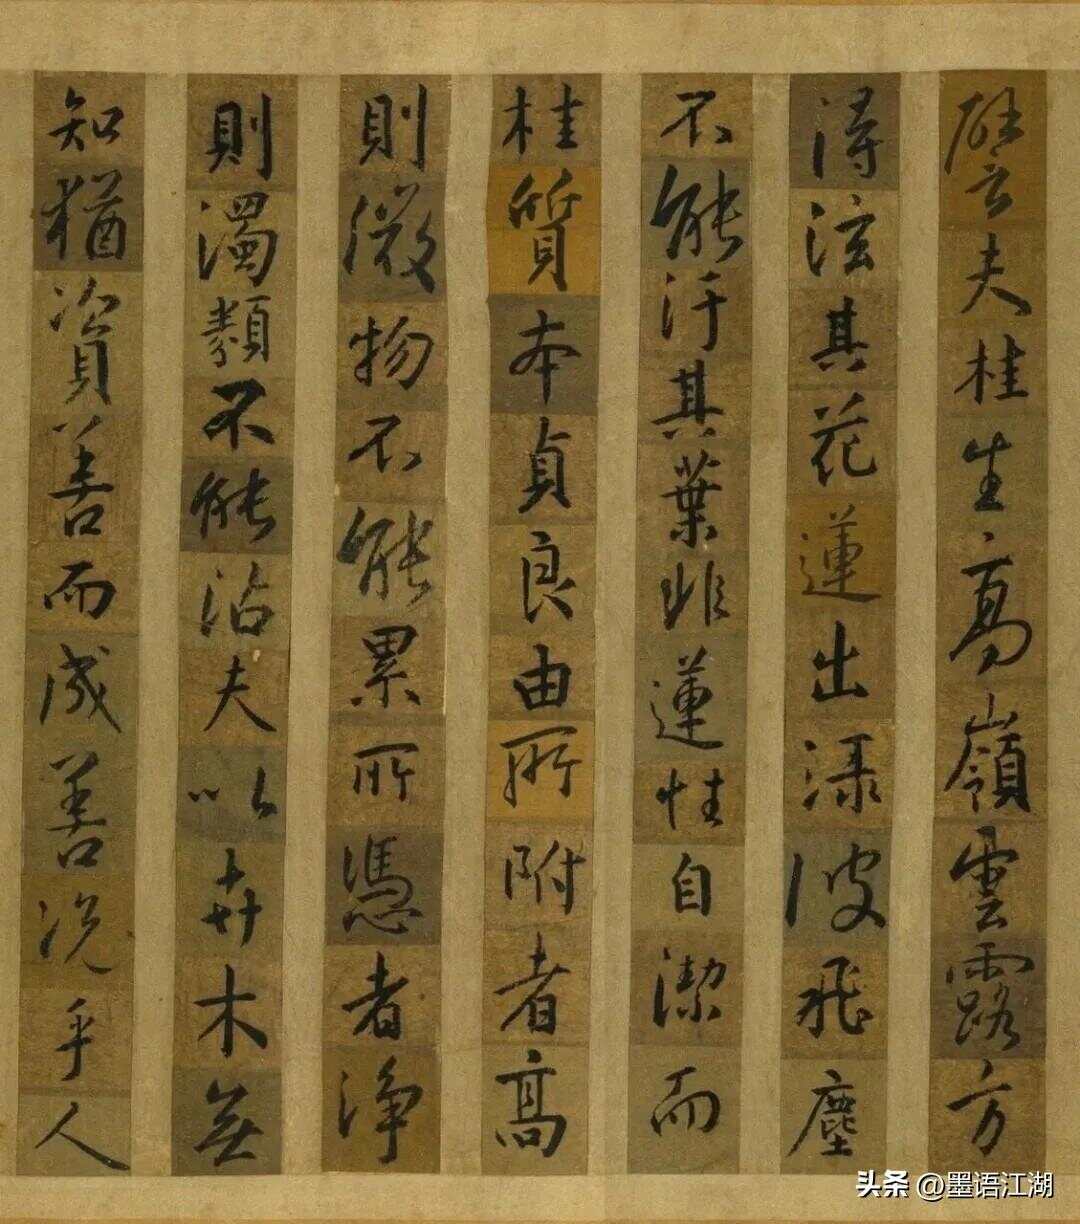 譬夫桂生高嶺雲露方
得泫其花蓮出淥波飛塵
不能汙其葉非蓮性自潔而
桂質本貞良由所附者高
則微物不能累所憑者淨
則濁類不能沾夫以卉木無
知猶資善而成善況乎人
头条 @墨语江湖